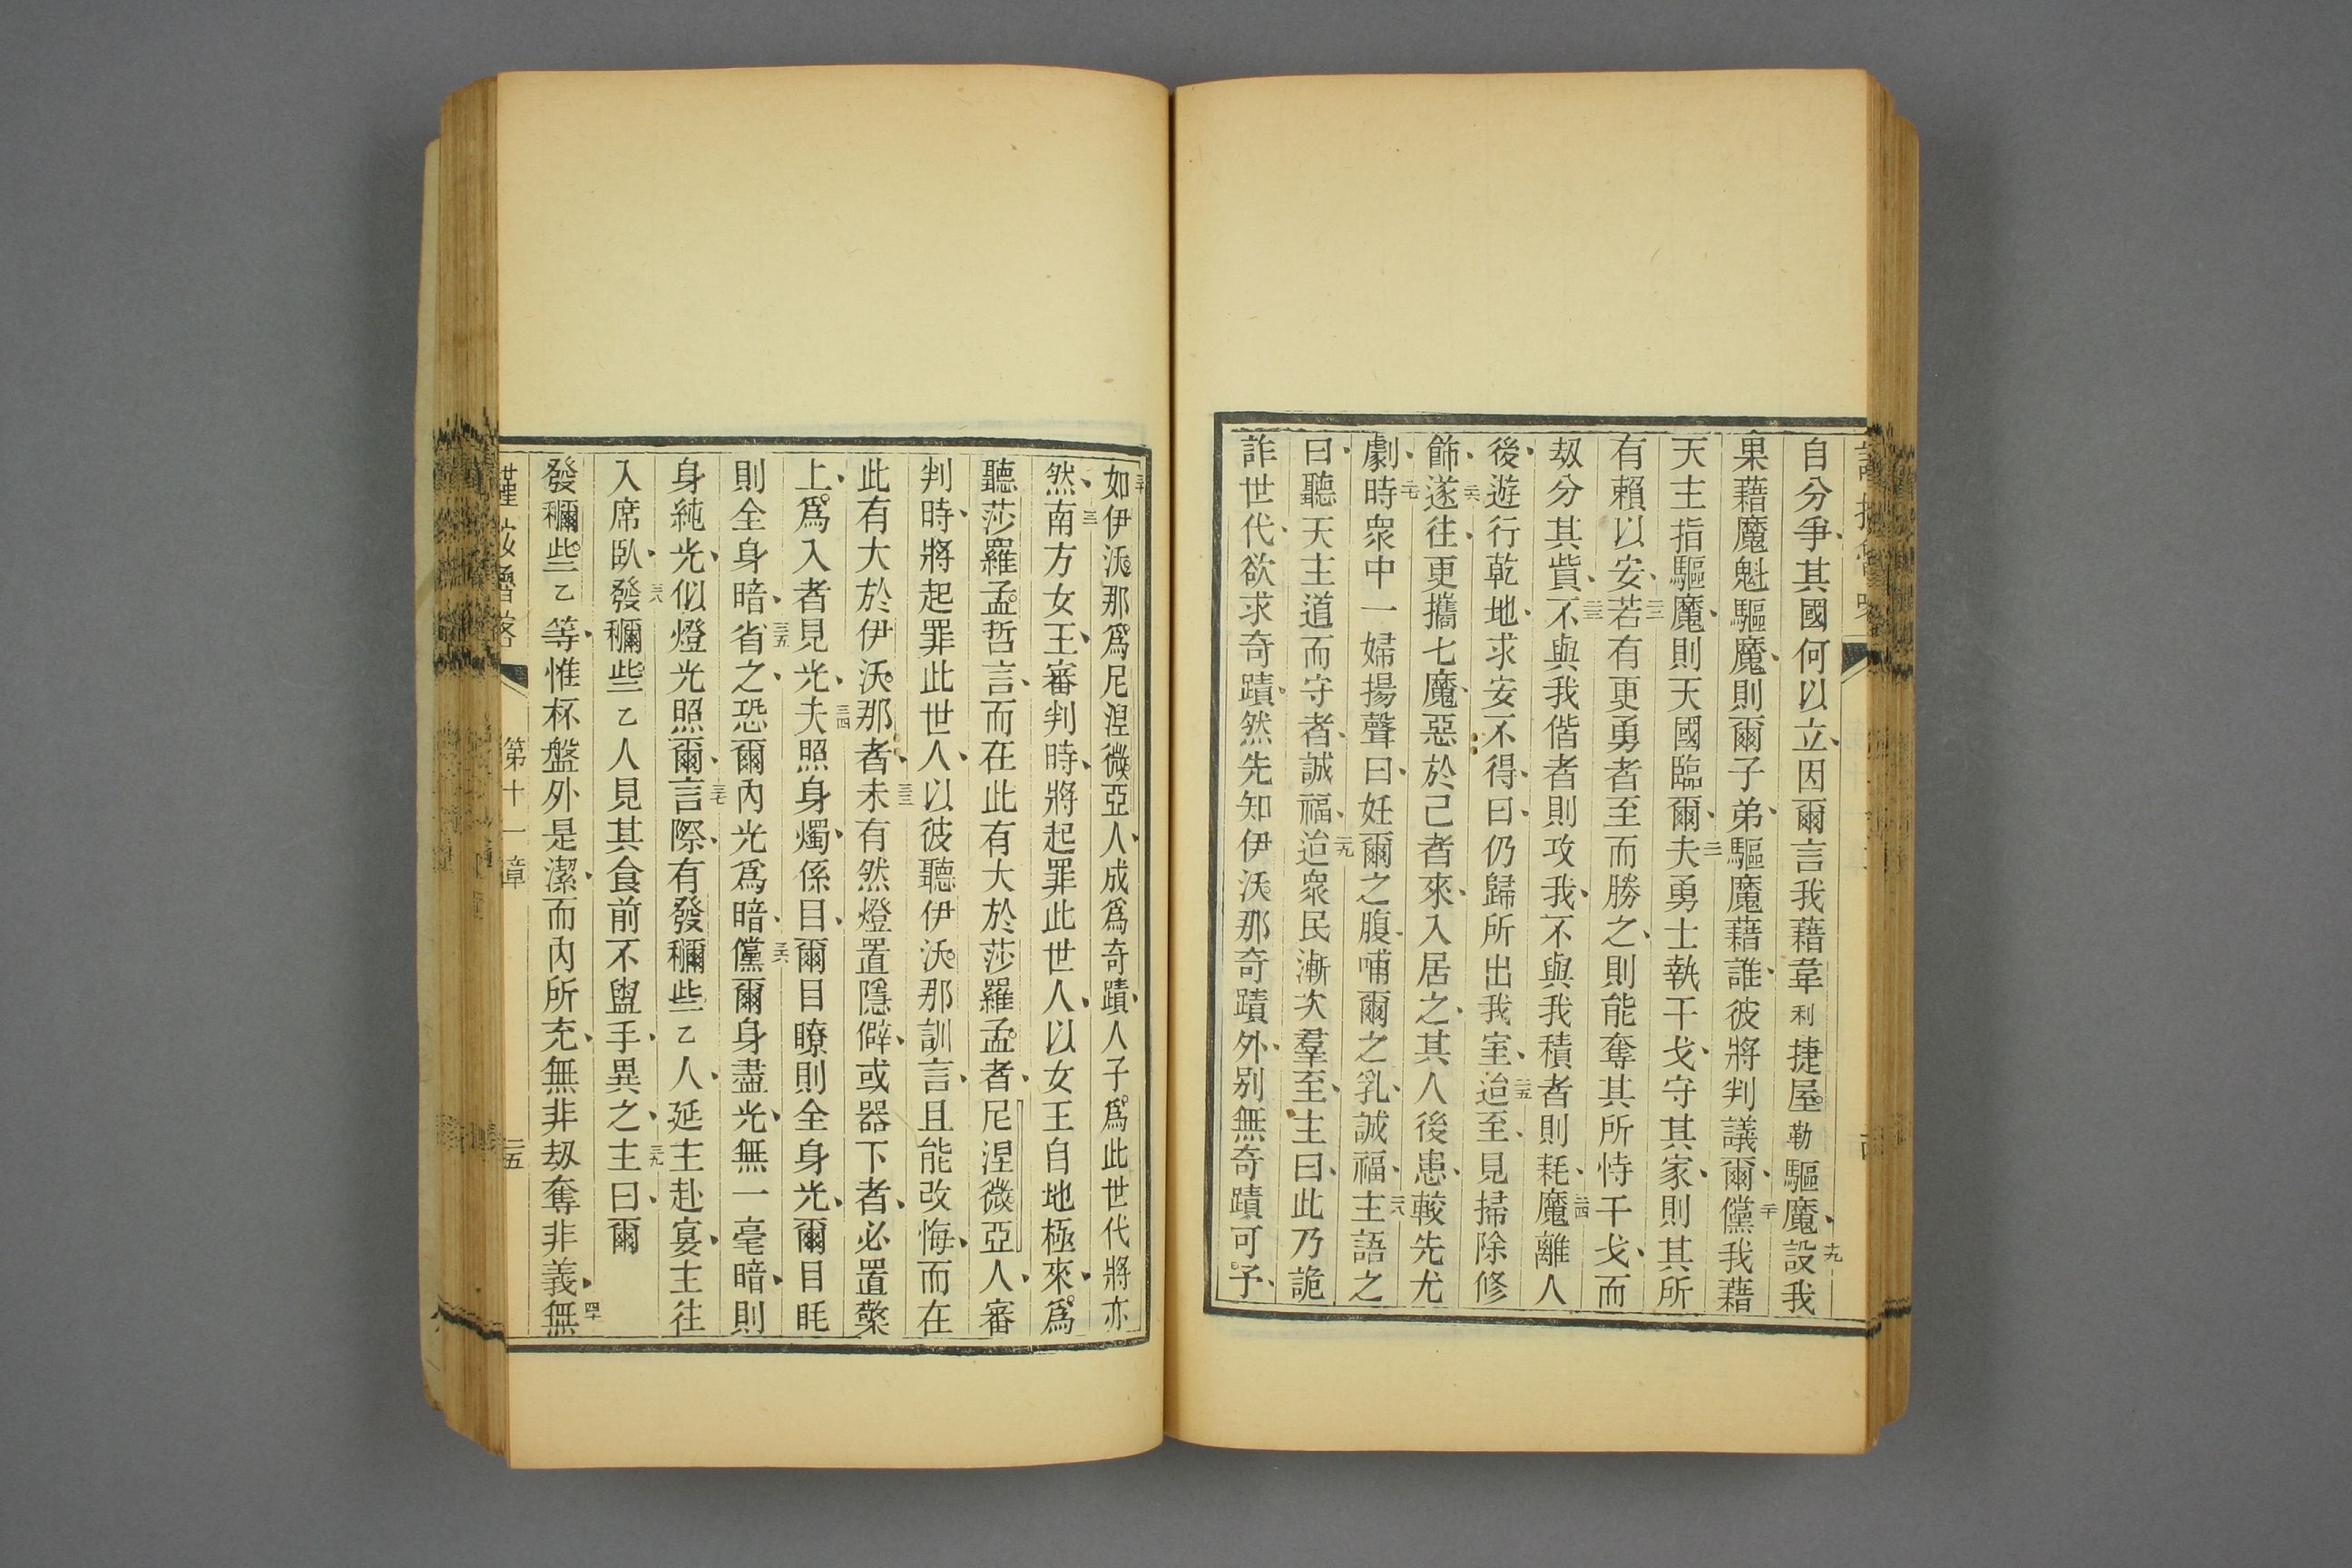 自分爭、其國何以立、因爾言我藉韋利捷屋勒驅魔、十九設我
果藉魔魁驅魔、則爾子弟、驅魔藉誰、彼將判議爾、二十儻我藉
天主指驅魔、則天國臨爾、二一夫勇士執干戈、守其家、則其所
有賴以安、二二若有更勇者至而勝之、則能奪其所恃干戈、而
刼分其貲、二三不與我偕者則攻我、不與我積者則耗、二四魔離人
後、遊行乾地、求安不得、曰、仍歸所出我室、二五迨至、見掃除修
飾、二六遂往、更攜七魔、惡於己者來、入居之、其人後患、較先尤
劇、二七時衆中一婦揚聲曰、妊爾之腹、哺爾之乳、誠福、二八主語之
曰、聽天主道而守者、誠福、二九迨衆民漸次羣至、主曰、此乃詭
詐世代、欲求奇蹟、然先知伊沃那奇蹟外、别無奇蹟可予、
三十如伊沃那爲尼湼微亞人、成爲奇蹟、人子爲此世代將亦
然、三一南方女王、審判時、將起罪此世人、以女王自地極來、爲
聽莎羅孟哲言、而在此有大於莎羅孟者、三二尼湼微亞人、審
判時、將起罪此世人、以彼聽伊沃那訓言、且能改悔、而在
此有大於伊沃那者、三三未有然燈置隱僻、或器下者、必置檠
上、爲入者見光、三四夫照身燭、係目、爾目瞭則全身光、爾目眊
則全身暗、三五省之、恐爾內光爲暗、三六儻爾身盡光、無一毫暗、則
身純光、似燈光照爾、三七言際、有發穪些乙人、延主赴宴、主往
入席臥、三八發穪些乙人見其食前不盥手、異之、三九主曰、爾
發穪些乙等、惟杯盤外是潔、而內所充、無非刼奪非義、四十無
第十一章
二五